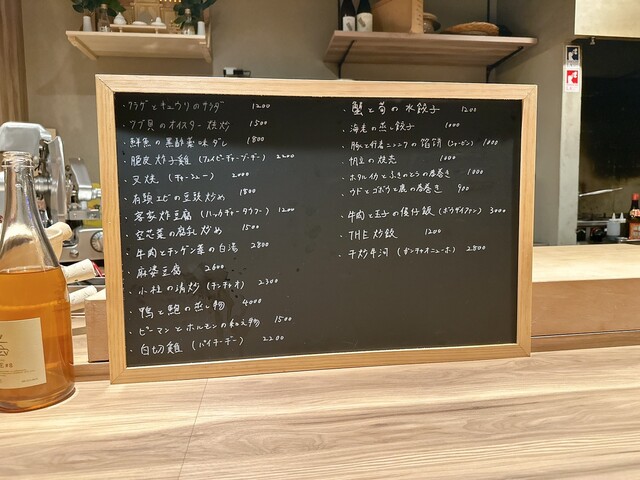 ・クラゲとキュウリのサラダ 1200
・ツブ貝のオイスター炒 1500
・鮮魚の黒酢薬味ダレ 1800
・脆皮炸子雞 (ツァイピーチャーヅーヂー) 2200
・叉焼 (チャーシュー) 2000
・有頭エビの豆鼓炒め 1800
・客家炸豆腐 (ハッカヂャートウフー) 1200
・空芯菜の腐乳炒め 1500
・牛肉と の白湯 2800
・麻婆豆腐 2600
・小柱の清炒 (チンチャオ) 2300
・鴨と鮑の蒸し物 4000
・ピーマンとホルモンの和え物 1500
・白切雞 (パイチーヂー) 2200
・蟹と筍の水餃子 1200
・海老の蒸し餃子 1000
・豚と行者ニンニクの餡餅 (シャーピン) 1000
・帆立の焼売 1000
・ホタルイカとふきのとうの春巻き 1000
・ウドとゴボウと鹿の春巻き 900
・牛肉と玉子の煲仔飯 (ボウヂャイファン) 3000
・THE炒飯 1200
・干炒牛河 (ガンチャオニューホー) 2800